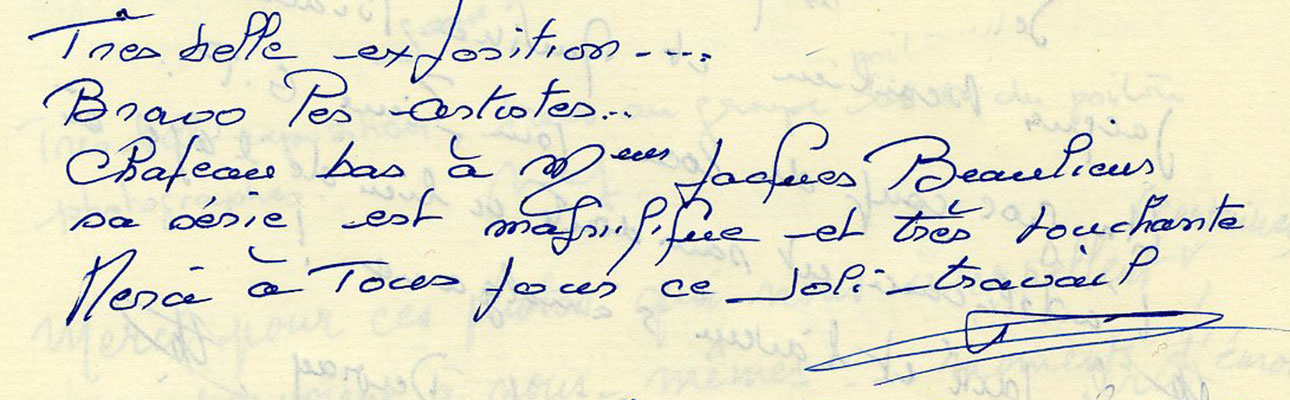 Très belle exposition....
Bravo les artistes...
Chapeau bas à Mieur Jacques Beaulieu
sa série est magnifique et très touchante
Merci à Tous pour ce joli travail